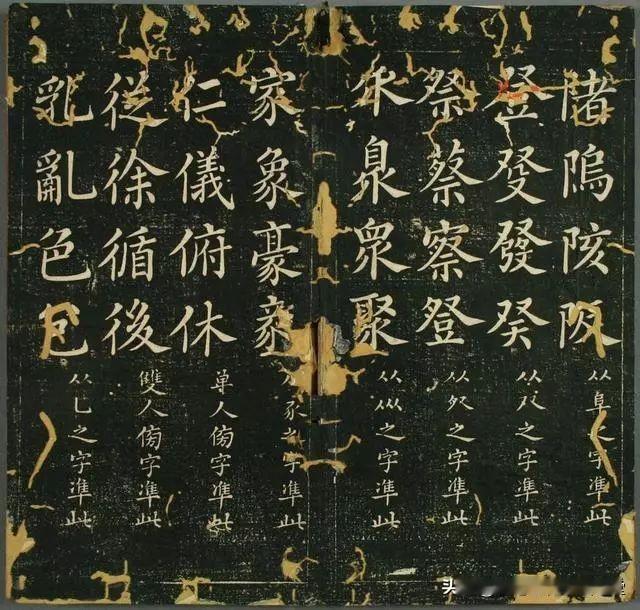 陼隖陔阪
从阜之字準此
登癹發癸
从癶之字準此
祭蔡察登
之字準此
乑臮眾聚
从㐺之字準此
家象豪
豕之字準此
仁儀俯休
单人傍字準此
從徐循後
雙人傍字準此
乳亂色
从乚之字準此